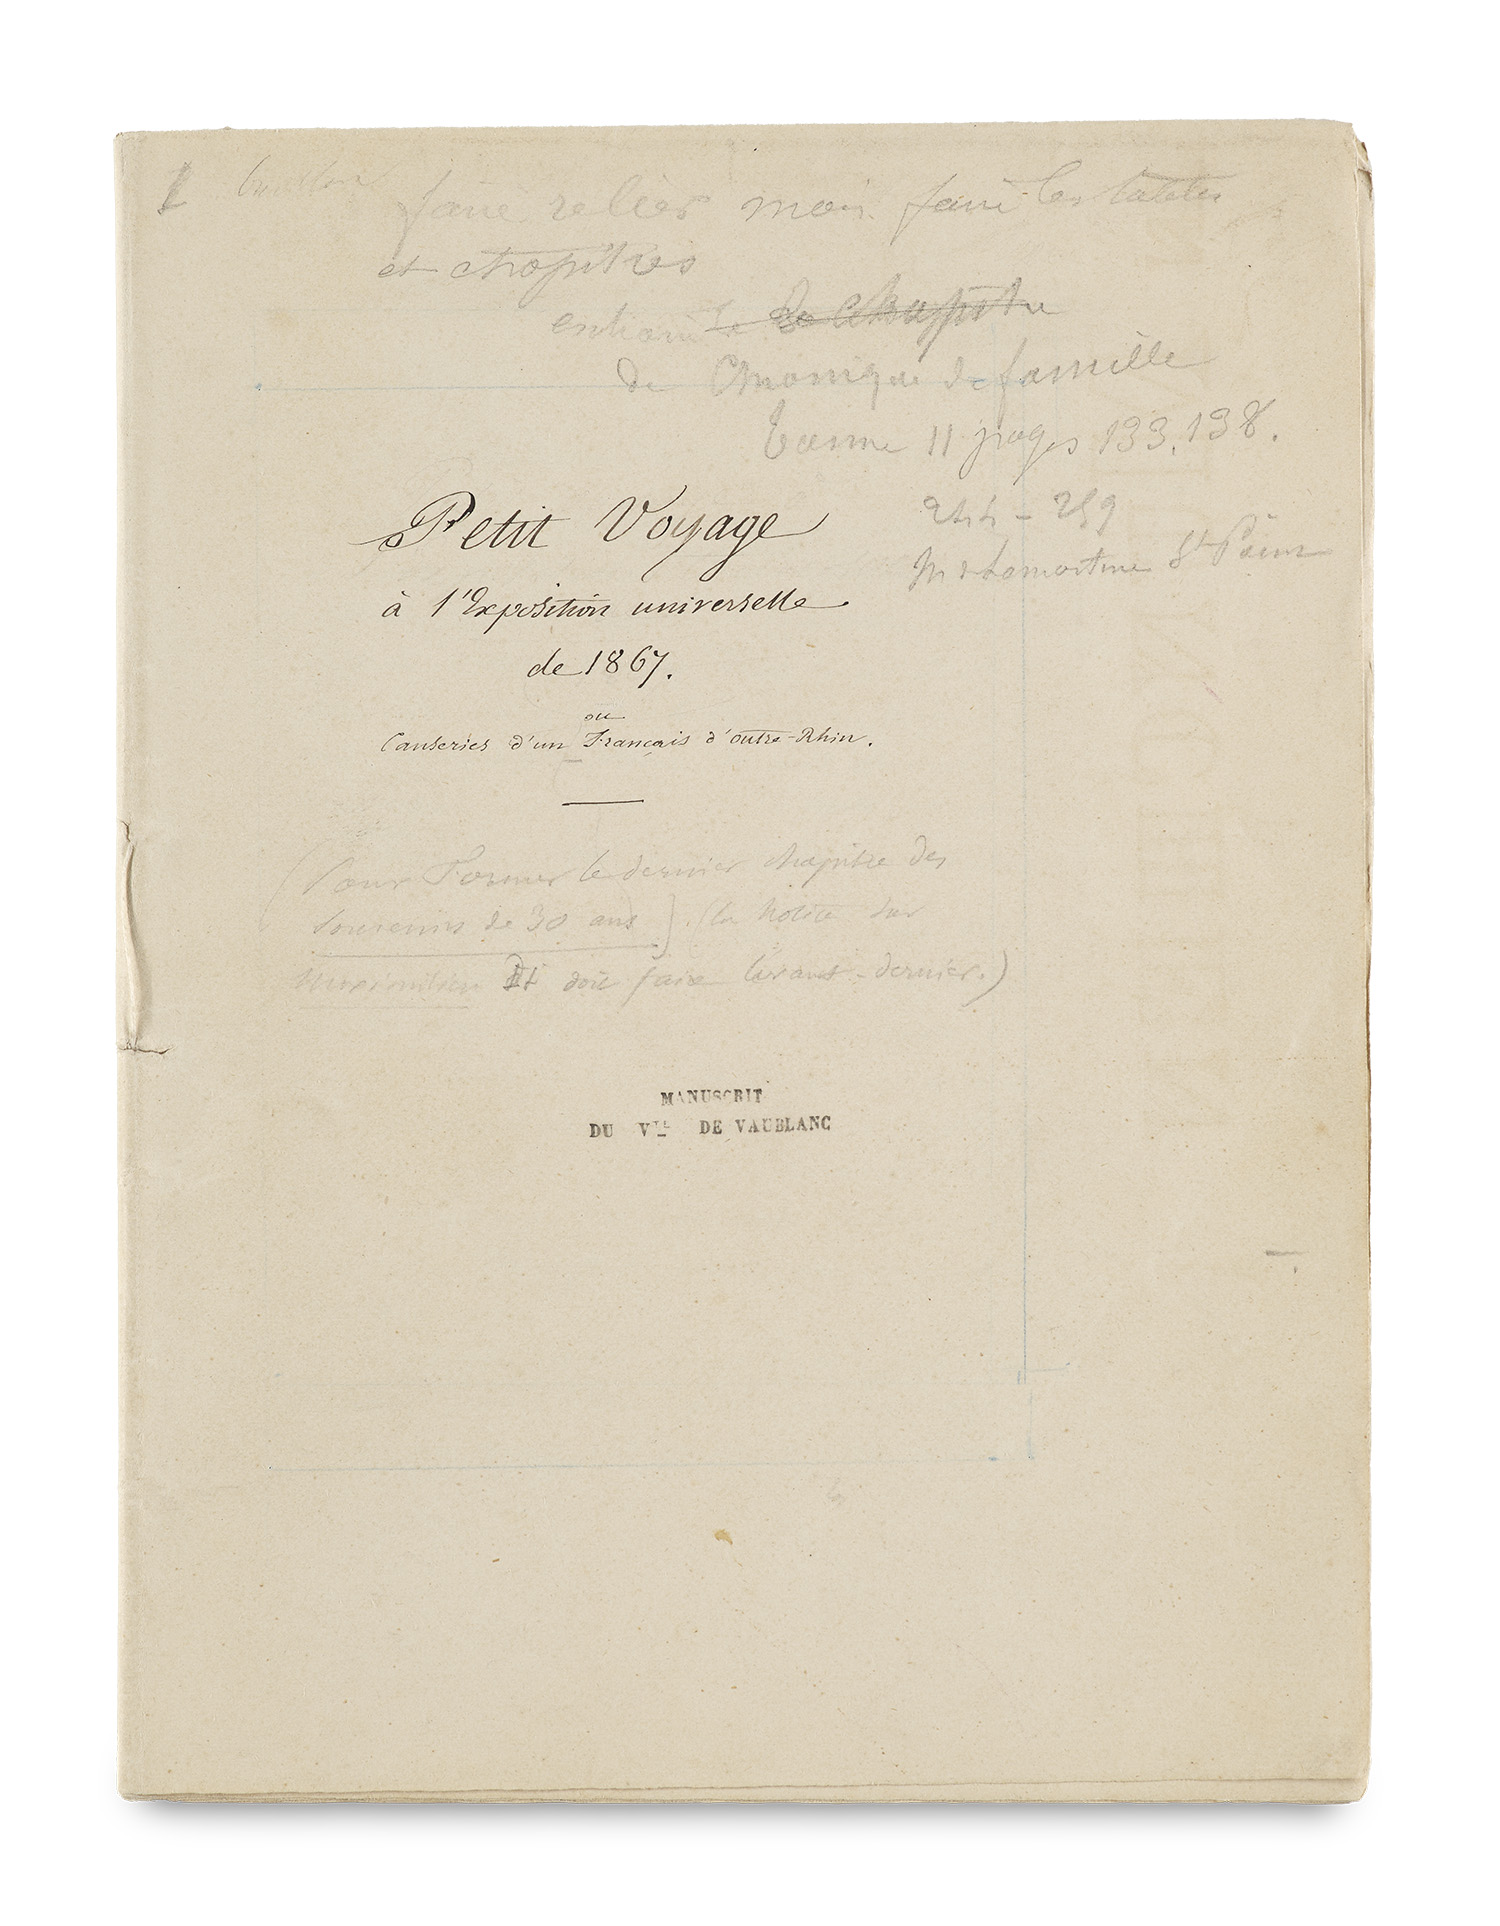 faire relier mais faire les tables
et chapitres
le chapitre
de Chronique de famille
tome 11 pages 133, 138.
244 - 259
Mr de Lamartine St Point
Petit Voyage
à l'Exposition universelle
de 1867.
ou
Causeries d'un Français d'outre-Rhin.
(Pour Former le dernier chapitre des
Souvenirs de 30 ans). (La Notice sur
Maximilien II doit faire l'avant-dernier.)
MANUSCRIT
DU VTE DE VAUBLANC